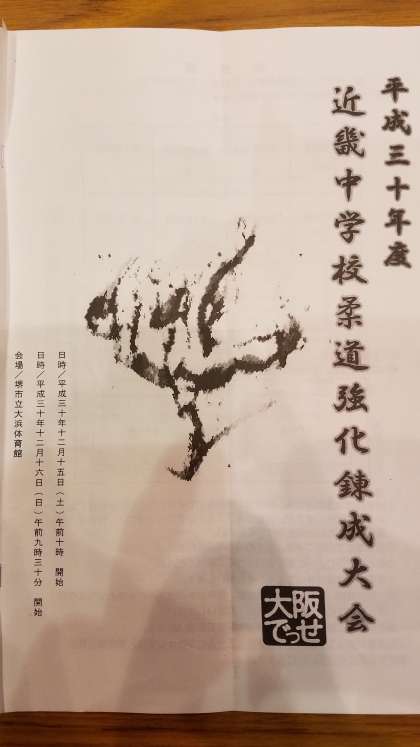 平成三十年度
近畿中学校柔道強化錬成大会
大阪
でっせ
日時／平成三十年十二月十五日（土）午前十時　開始
日時／平成三十年十二月十六日（日）午前九時三十分　開始
会場／堺市立大浜体育館